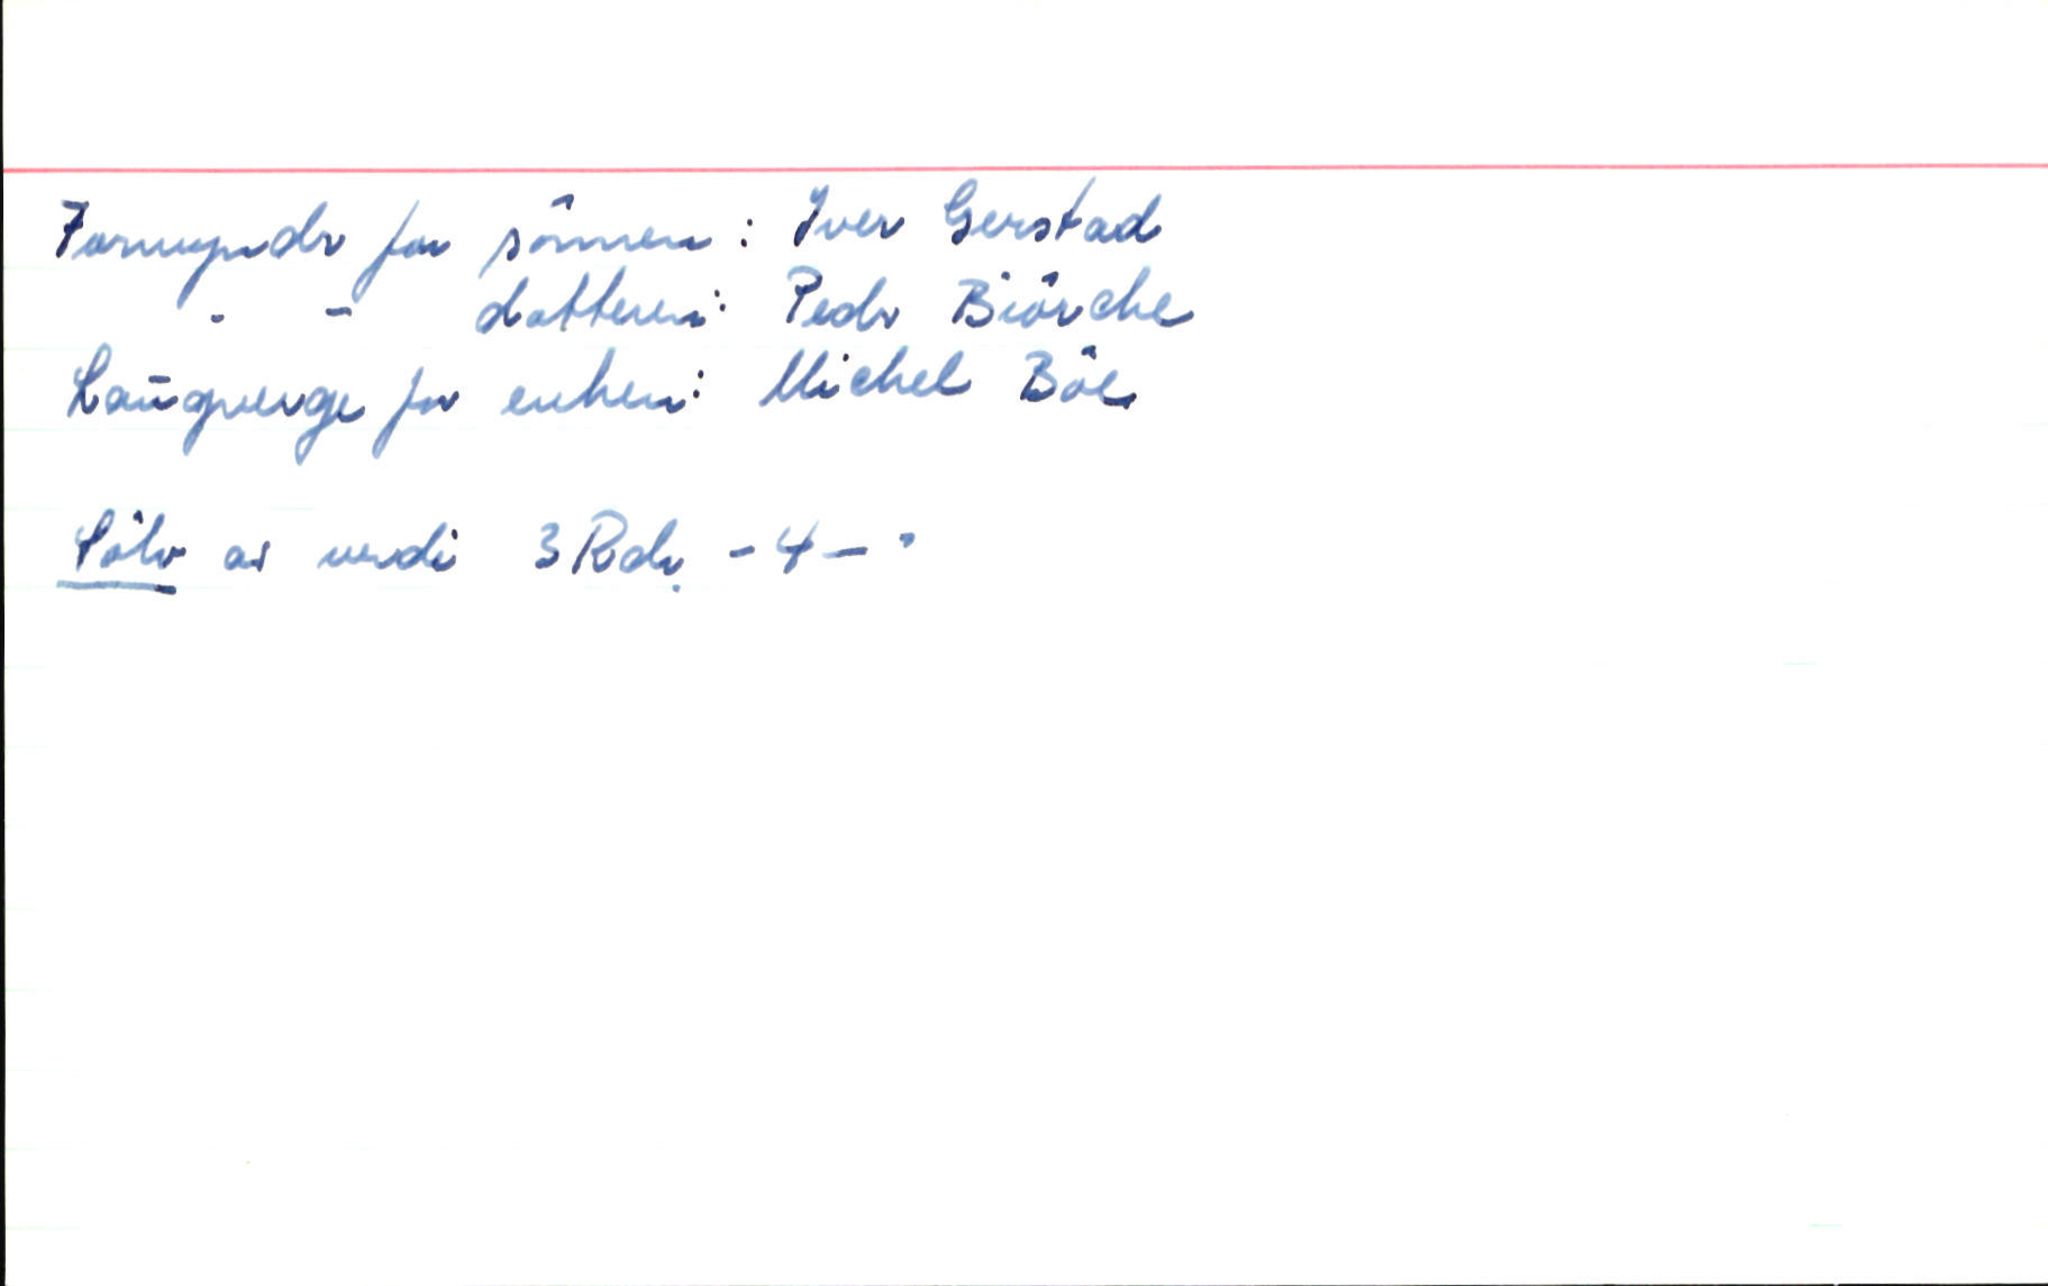 Formynder for sönnen: Iver Gerstad
- - datteren: Peder Biörche
Laugverge for enken: Michel Böe
Sölv av verdi 3 Rdr. - 4 -